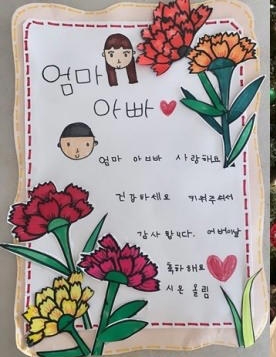 엄마
아빠
엄마 아빠 사랑해요
건강하세요 키워주셔서
감사합니다. 어버이날
축하해요
시온 올림